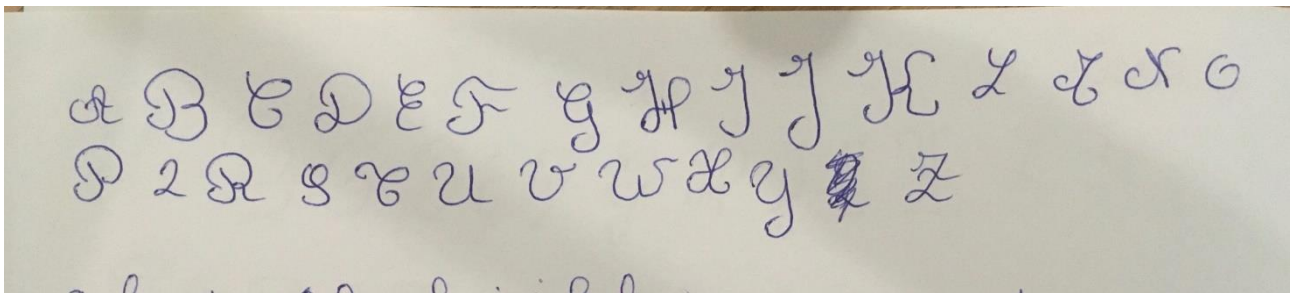 A B C D E F G H I J K L Z N O
P Q R S T U V W X Y Z